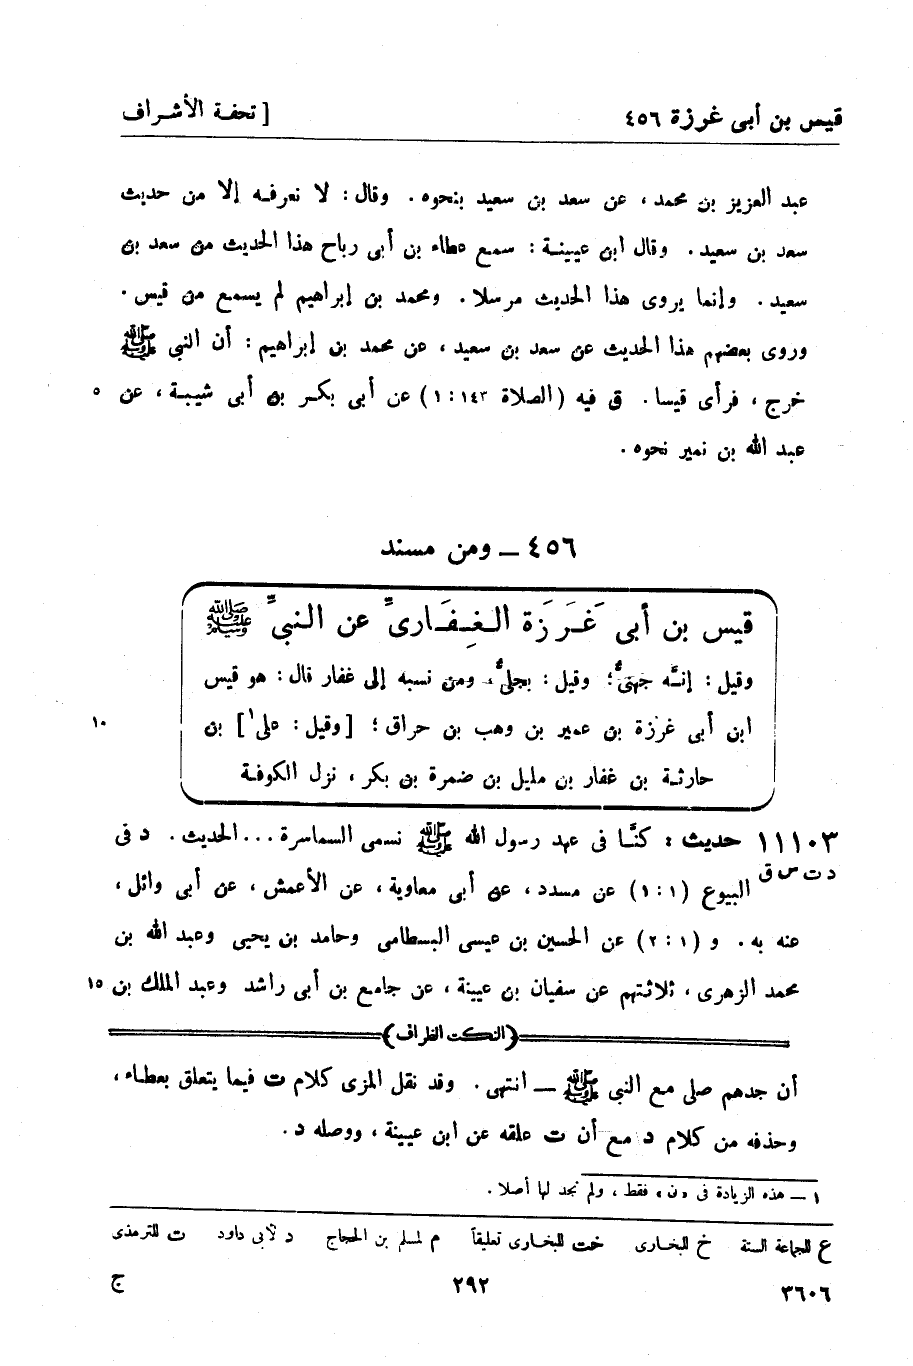 قيس بن أبى غرزة ٤٥٦ [ تحفة الأشراف
عبد العزيز بن محمد ، عن سعد بن سعيد بنحوه . وقال : لا نعرفه إلا من حديث
سعد بن سعيد . وقال ابن عيينة : سمع عطاء بن أبى رباح هذا الحديث من سعد بن
سعيد . وإنما يروى هذا الحديث مرسلا . ومحمد بن إبراهيم لم يسمع من قيس .
وروى بعضهم هذا الحديث عن سعد بن سعيد ، عن محمد بن إبراهيم : أن النبي ﷺ
خرج ، فرأى قيسا . ق فيه (الصلاة ١٤٣ : ١) عن أبى بكر بن أبى شيبة ، عن ٥
عبد الله بن نمير نحوه .
٤٥٦ ــ ومن مسند
قيس بن أبى غَرَزَة الغِفَارىّ عن النبىّ ﷺ
وقيل : إنّه جهنىٌّ؛ وقيل : بجلىٌّ، ومن نسبه إلى غفار قال : هو قيس
ابن أبى غرزة بن عمير بن وهب بن حراق ؛ [وقيل : على١] بن ١٠
حارثة بن غفار بن مليل بن ضمرة بن بكر ، نزل الكوفة
١١١٠٣ حديث : كنّا فى عهد رسول الله ﷺ نسمى السماسرة ... الحديث . د فى
د ت س ق البيوع (١ : ١) عن مسدد ، عن أبى معاوية ، عن الأعمش ، عن أبى وائل ،
عنه به . و (١ : ٢) عن الحسين بن عيسى البسطامى وحامد بن يحيى وعبد الله بن
محمد الزهرى ، ثلاثتهم عن سفيان بن عيينة ، عن جامع بن أبى راشد وعبد الملك بن ١٥
(النكت الظراف)
أن جدهم صلى مع النبي ﷺ ــ انتهى . وقد نقل المزى كلام ت فيما يتعلق بعطاء ،
وحذفه من كلام د مع أن ت علقه عن ابن عيينة ، ووصله د .
١ ــ هذه الزيادة فى «ن» فقط ، ولم نجد لها أصلا .
ع للجماعة الستة خ للبخارى خت للبخارى تعليقاً م لمسلم بن الحجاج د لأبى داود ت للترمذى
٣٦٠٦ ٢٩٢ ج